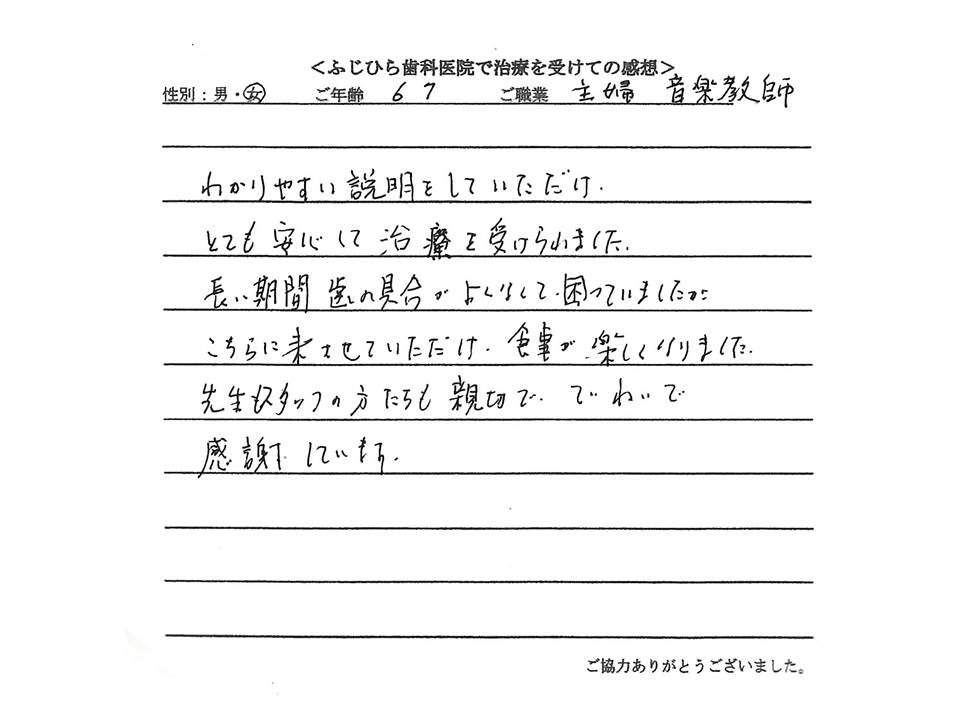 ＜ふじひら歯科医院で治療を受けての感想＞
性別：男・女 ご年齢 67 ご職業 主婦 音楽教師
わかりやすい説明をしていただけ.
とても安心して治療を受けられました.
長い期間歯の具合がよくなくて.困っていましたが
こちらに来させていただけ.食事が楽しくなりました.
先生もスタッフの方たちも親切で.ていねいで
感謝しています.
ご協力ありがとうございました。